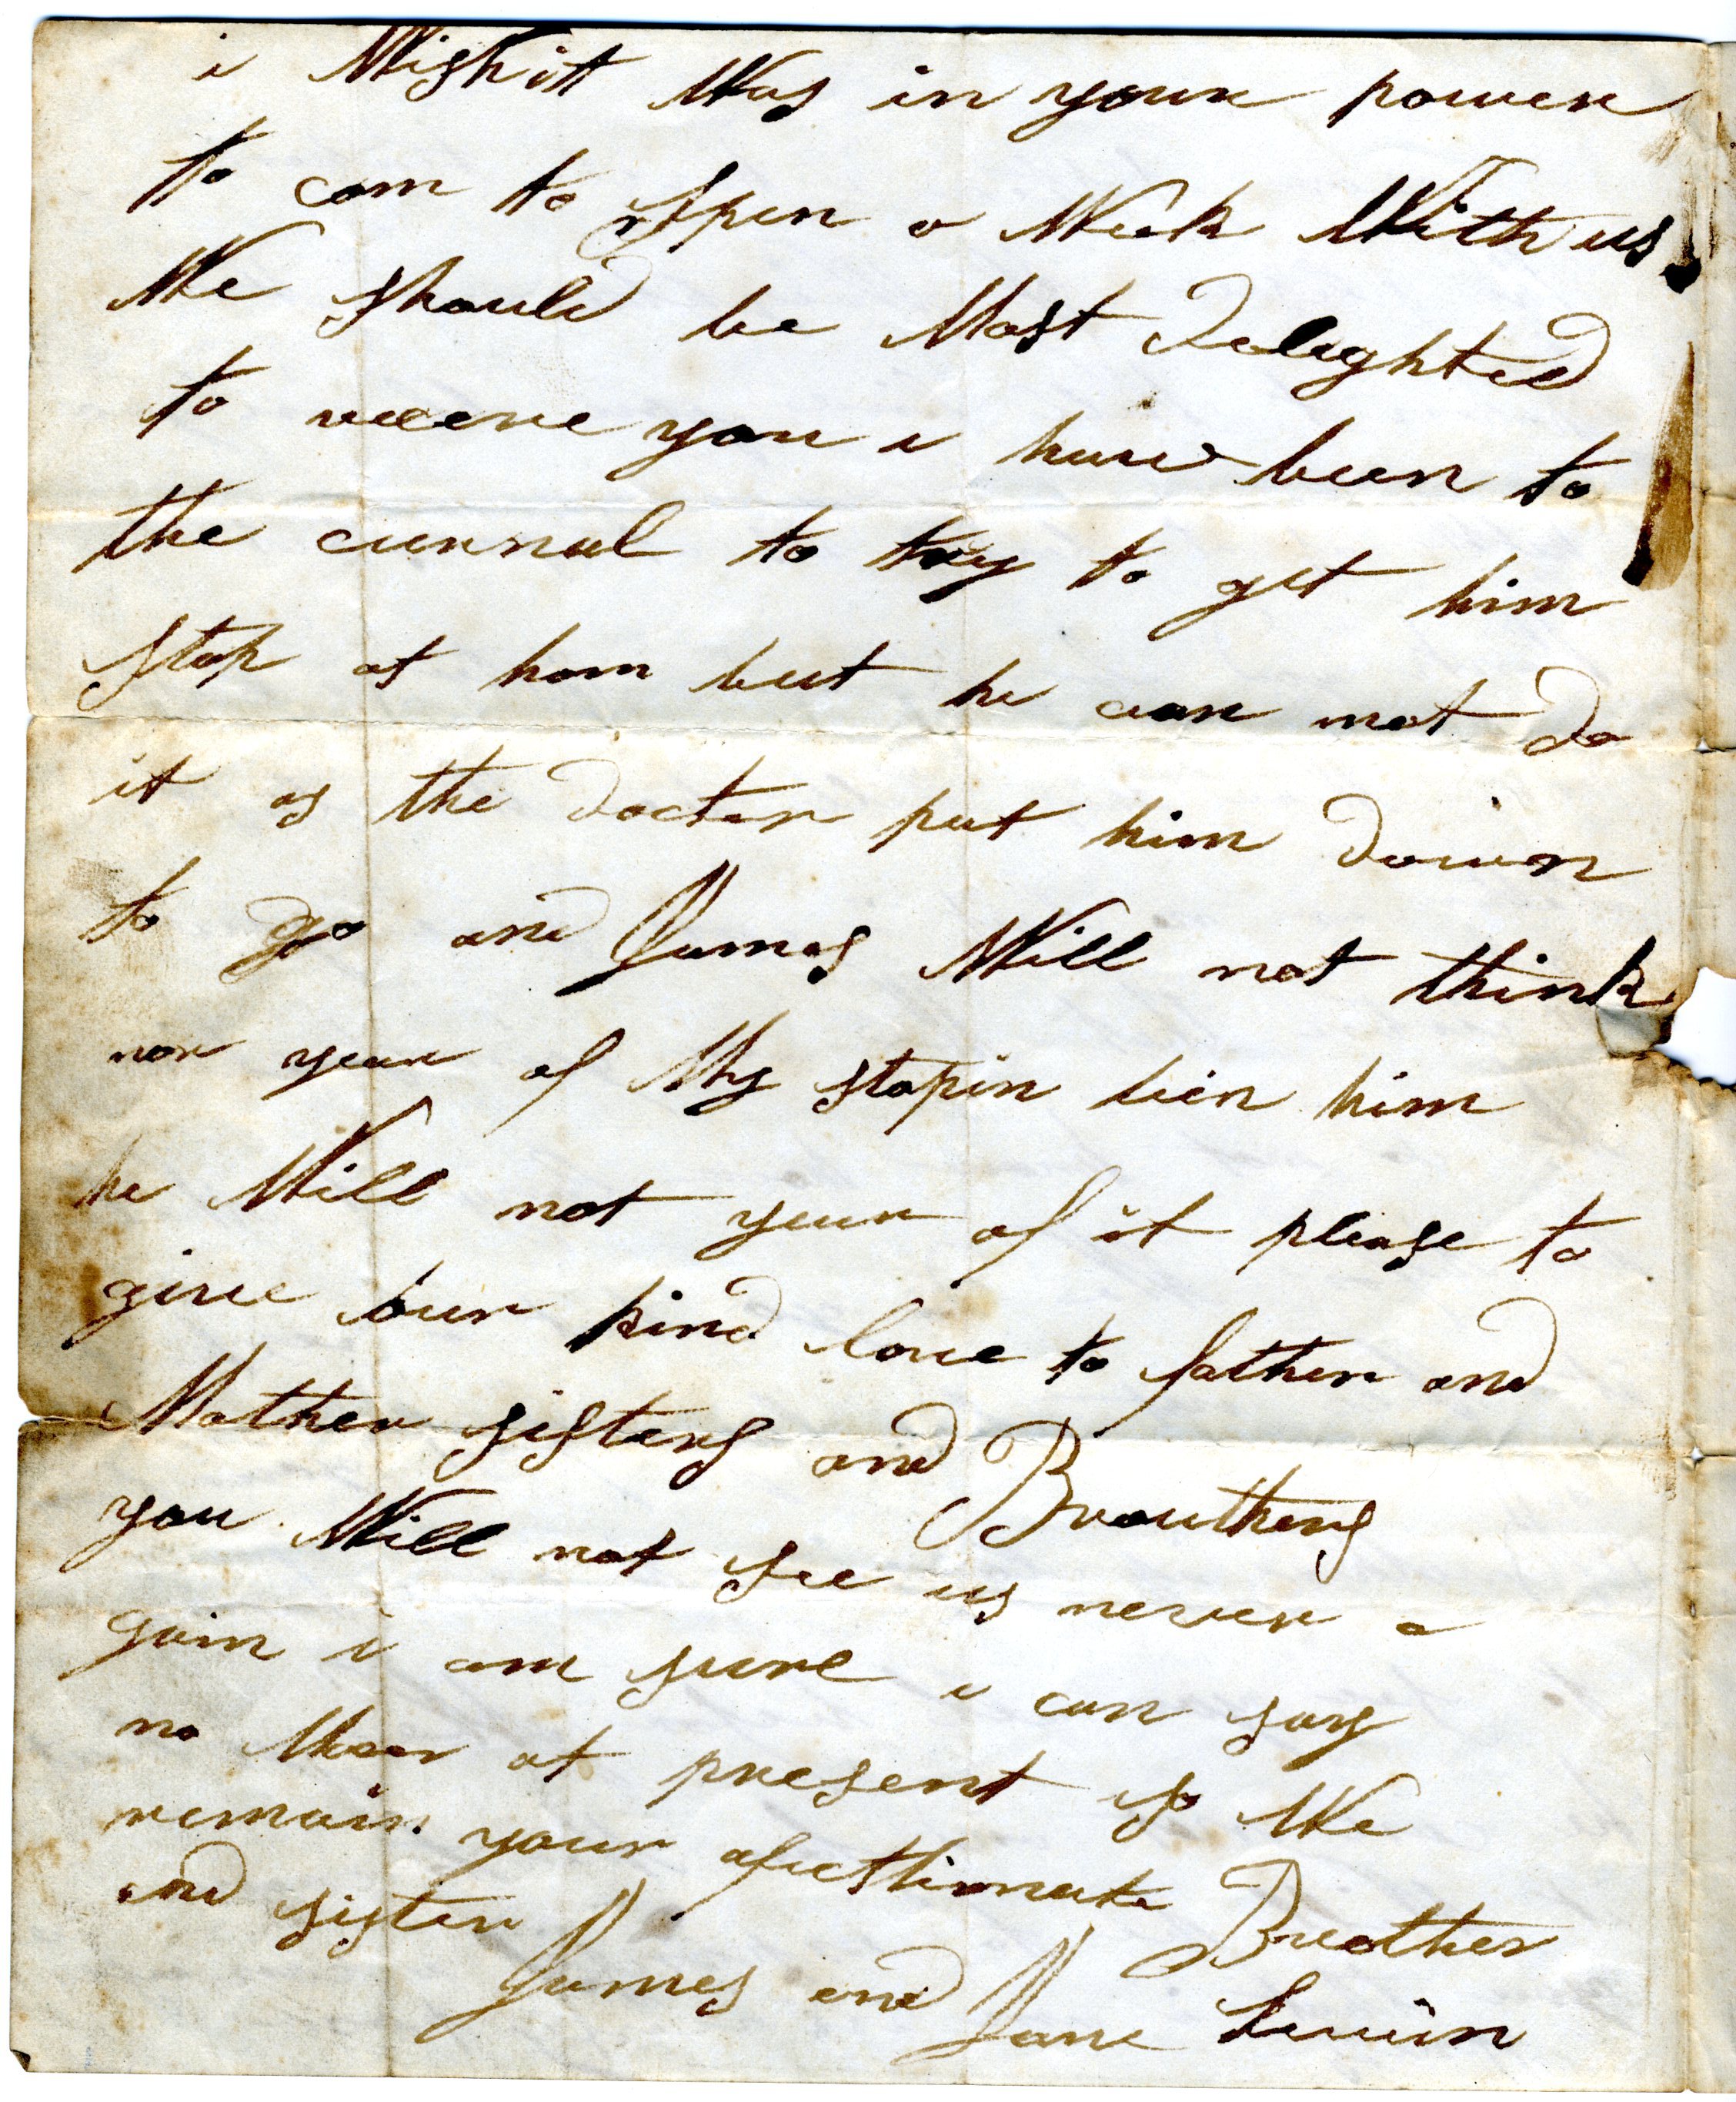 i Wish itt Was in your power
to com to Spen a Week With us
We should be Most Delighted
to receve you i have been to
the curnal to try to get him
stop at hom but he can not do
it as the doctor put him down
to go and James Will not think
nor year of My stopin bein him
he Will not year of it please to
give our kind love to father and
Mother sisters and Brouthers
you Will not see us never a
gain i am sure i can say
no Moor at present so We
remain your afectinate Brother
and sister
James and Jane Lewin